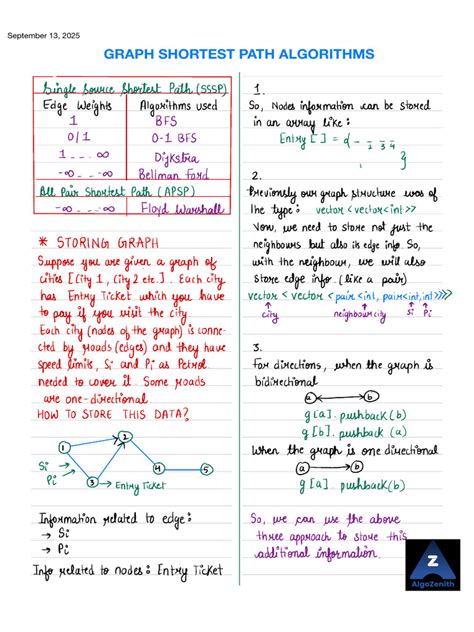 September 13, 2025
GRAPH SHORTEST PATH ALGORITHMS
Single Source Shortest Path (SSSP)
Edge Weights Algorithms used
1 BFS
0/1 0-1 BFS
1 - - - ∞ Dijkstra
-∞ - - ∞ Bellman Ford
All Pair Shortest Path (APSP)
-∞ - - ∞ Floyd Warshall
* STORING GRAPH
Suppose you are given a graph of
cities [City 1, City 2 etc.]. Each city
has Entry Ticket which you have
to pay if you visit the city.
Each city (nodes of the graph) is conne-
cted by roads (edges) and they have
speed limits, Si and Pi as Petrol
needed to cover it. Some roads
are one-directional.
HOW TO STORE THIS DATA?
1 2 3 4 5
Si
Pi
→ Entry Ticket
Information related to edge:
→ Si
→ Pi
Info related to nodes: Entry Ticket
1.
So, Nodes information can be stored
in an array like:
Entry [ ] = { - - - -
1 2 3 4
}
2.
Previously our graph structure was of
the type: vector<vector<int>>
Now, we need to store not just the
neighbours but also its edge info. So,
with the neighbour, we will also
store edge info. (like a pair)
vector < vector < pair<int, pair<int,int>>>>
city neighbour city Si Pi
3.
For directions, when the graph is
bidirectional
a b
g[a].pushback(b)
g[b].pushback(a)
When the graph is one directional
a b
g[a].pushback(b)
So, we can use the above
three approach to store this
additional information.
Z
AlgoZenith